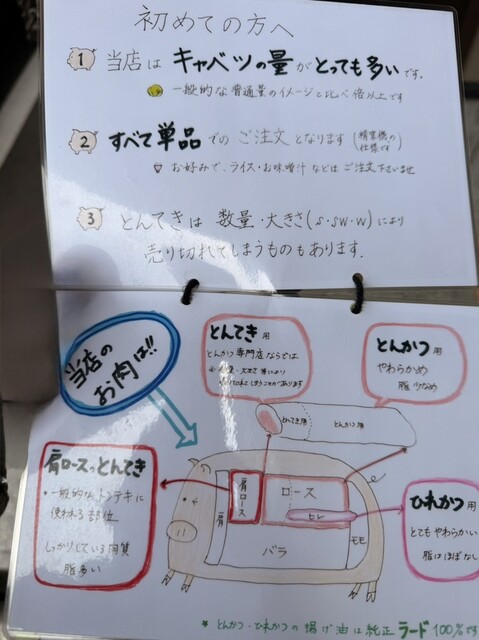 初めての方へ
1 当店は キャベツの量が とっても多いです。
一般的な普通量のイメージと比べ倍以上です
2 すべて単品でのご注文となります(精算機の
仕様です)
お好みで、ライス・お味噌汁などはご注文下さいませ
3 とんてきは 数量・大きさ(S・SW・W)により
売り切れてしまうものもあります。
当店の
お肉は!!
とんてき用
とんかつ専門店ならでは
数量・大きさ等により
とんかつ用
やわらかめ
脂少なめ
とんてき用
とんかつ用
肩ロースっとんてき
・一般的なトンテキに
使われる部位
しっかりしている肉質
脂多い
肩
肩ロース
ロース
ヒレ
バラ
モモ
ひれかつ用
とてもやわらかい
脂はほぼなし
★とんかつ・ひれかつの揚げ油は純正ラード100%です